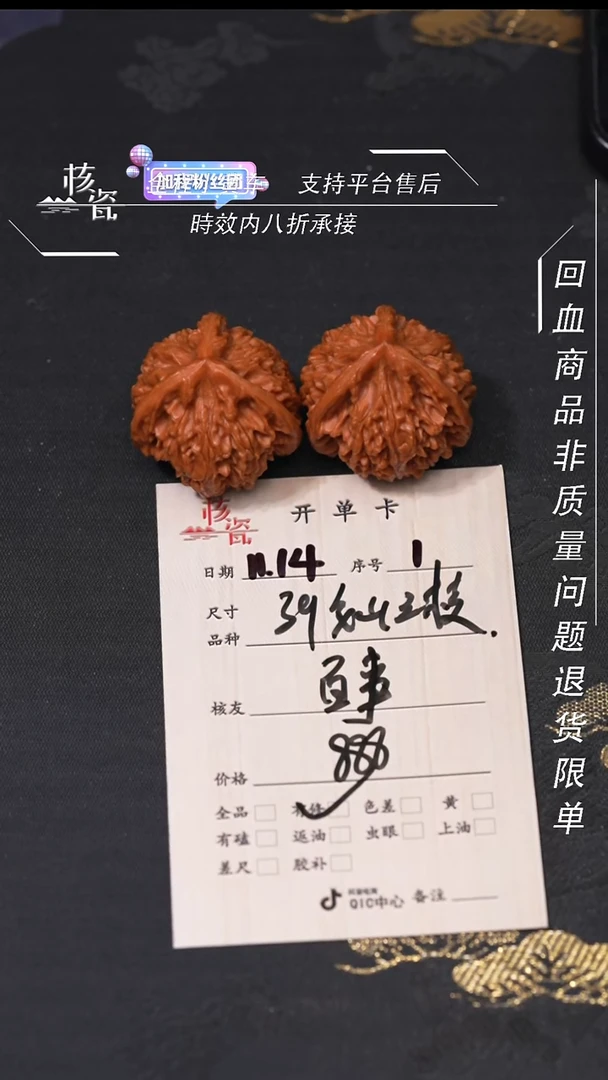 核瓷
加程粉丝团
支持平台售后
時效内八折承接
回血商品非质量问题退货限单
核瓷
开单卡
日期 11.14 序号 1
尺寸 39
品种
核友 百事
价格 888
全品 有修 色差 黄
有磕 返油 虫眼 上油
差尺 胶补
QIC中心 备注